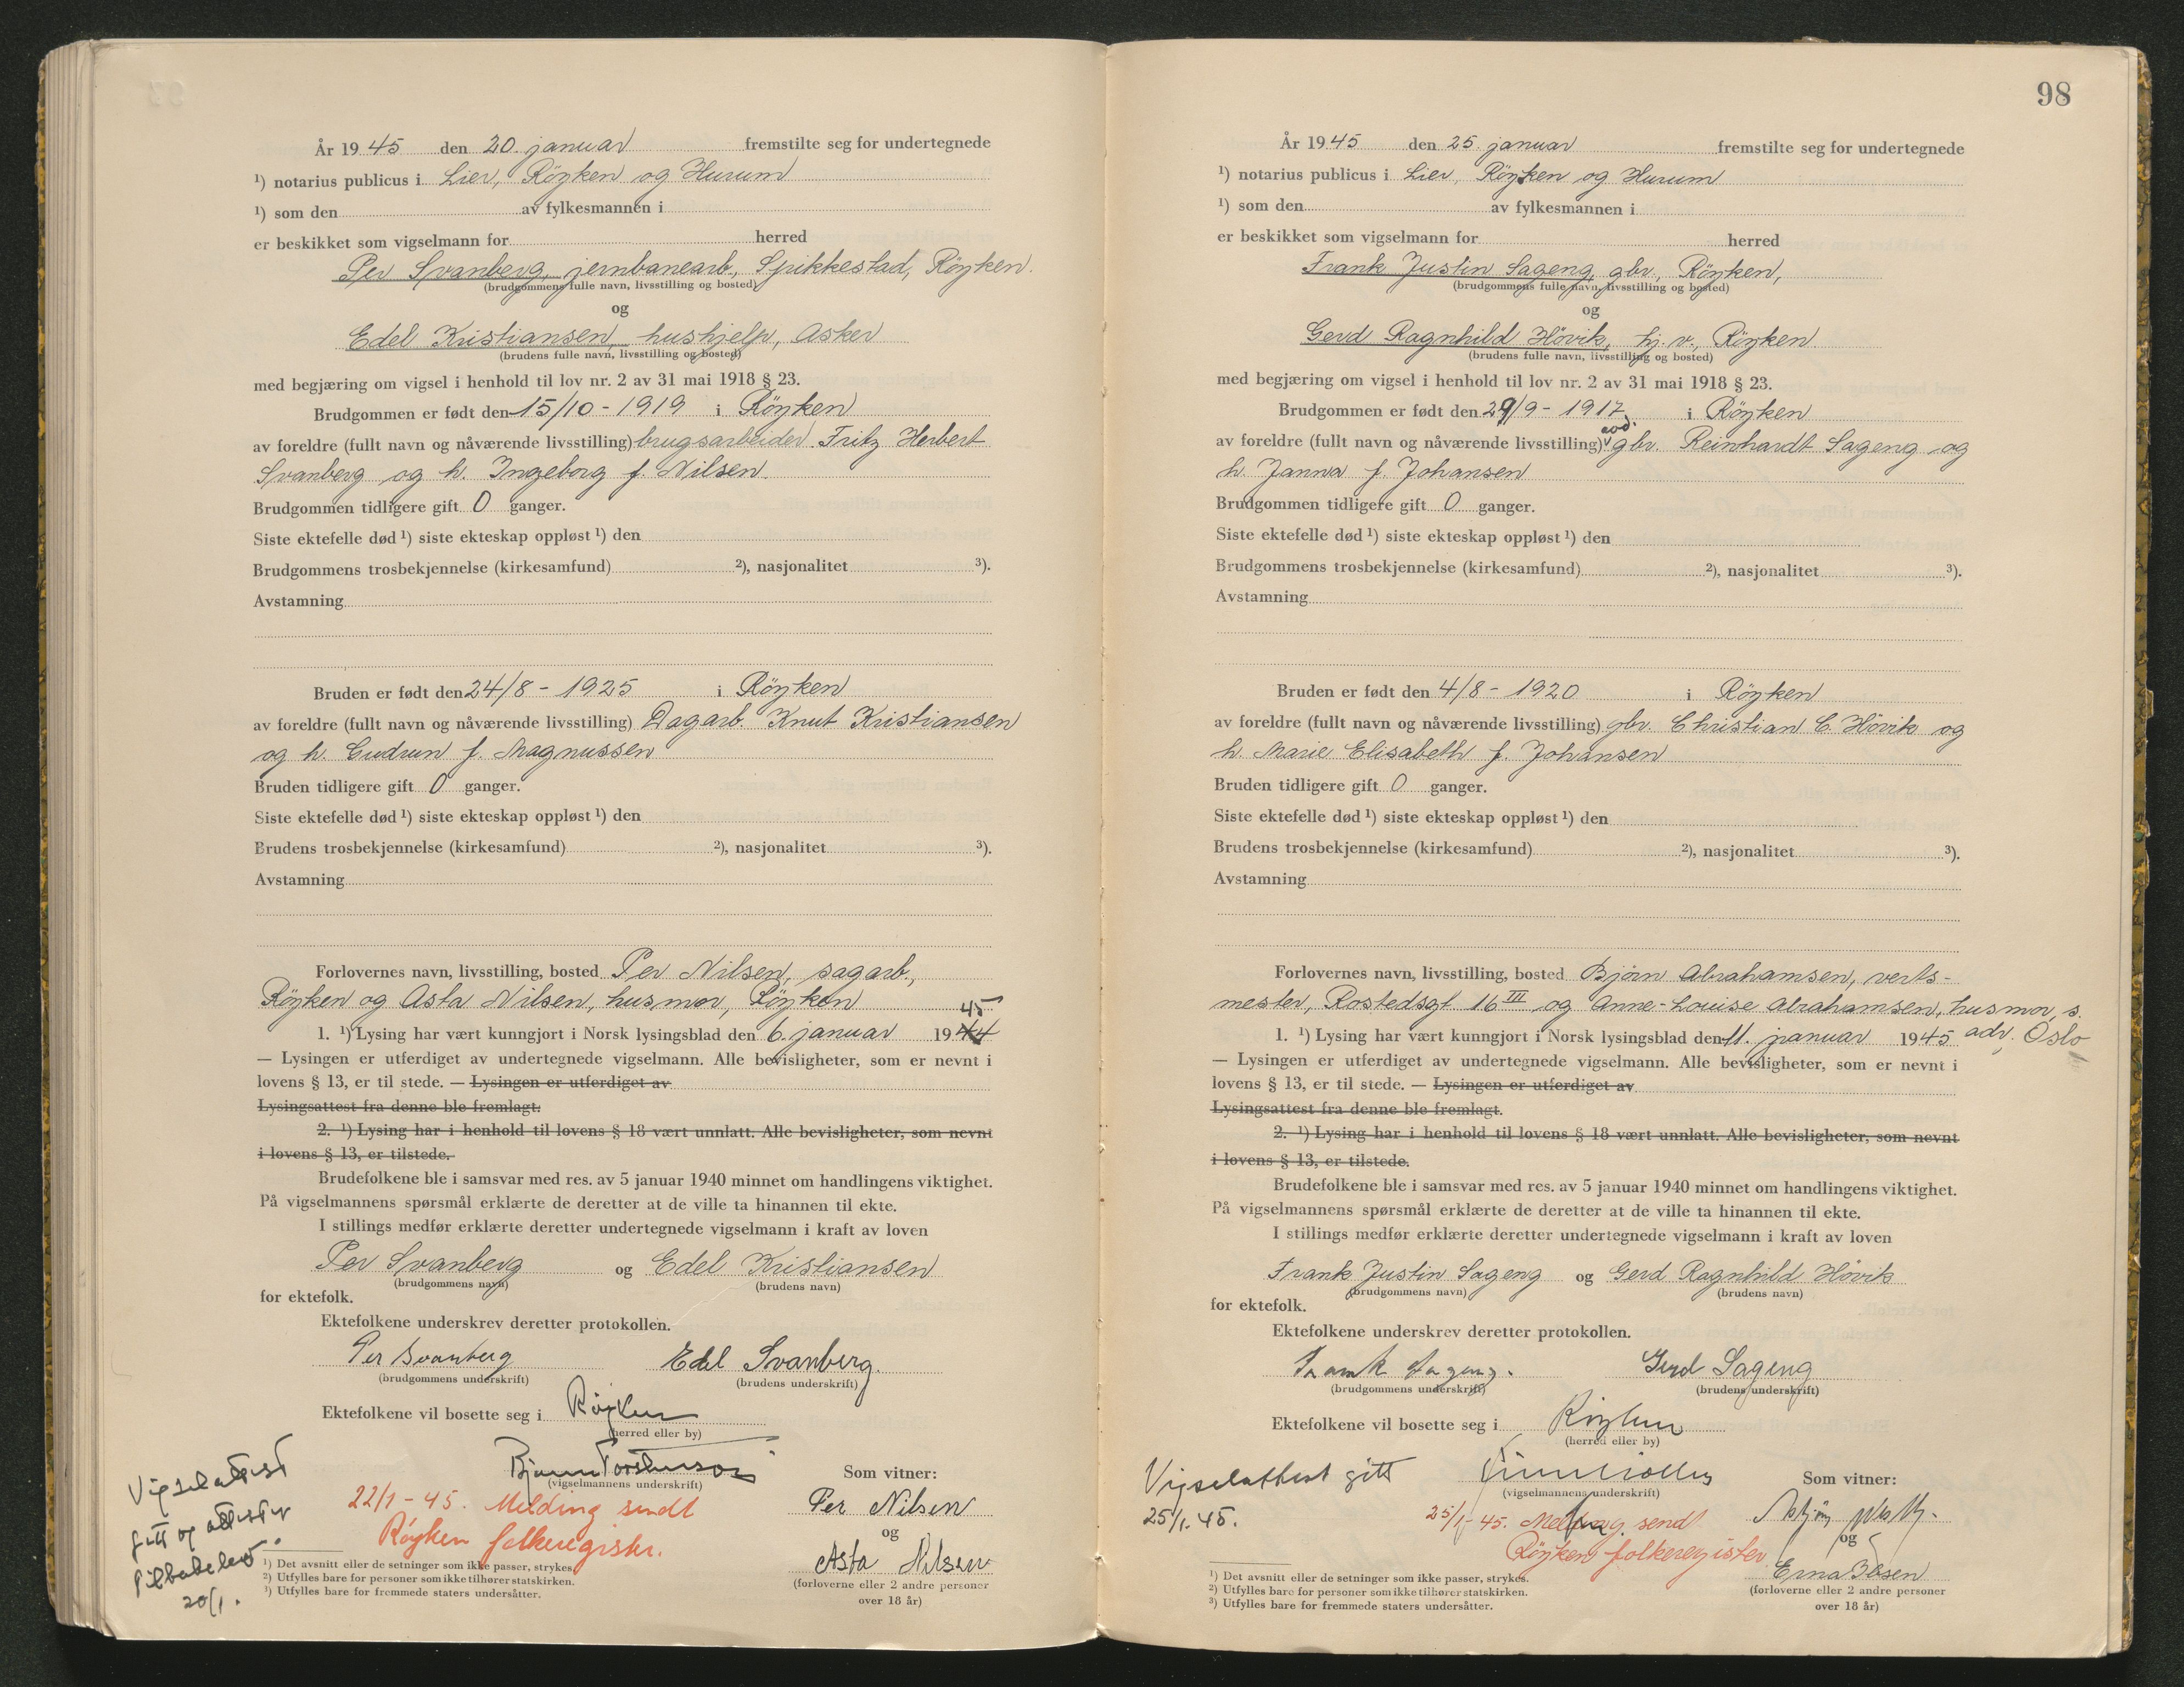 År 19 45 den 20. januar fremstilte seg for undertegnede
¹) notarius publicus i Lier, Röyken og Hurum
¹) som den av fylkesmannen i
er beskikket som vigselmann for herred
Per Svanberg, jernbanearb., Spikkestad, Röyken.
(brudgommens fulle navn, livsstilling og bosted)
og
Edel Kristiansen, hushjelp, Asker
(brudens fulle navn, livsstilling og bosted)
med begjæring om vigsel i henhold til lov nr. 2 av 31 mai 1918 § 23.
Brudgommen er født den 15/10 - 1919 i Röyken
av foreldre (fullt navn og nåværende livsstilling) brugsarbeider Fritz Herbert
Svanberg og h. Ingeborg f. Nilsen.
Brudgommen tidligere gift 0 ganger.
Siste ektefelle død ¹) siste ekteskap oppløst ¹) den
Brudgommens trosbekjennelse (kirkesamfund) ²), nasjonalitet ³).
Avstamning
Bruden er født den 24/8 - 1925 i Röyken
av foreldre (fullt navn og nåværende livsstilling) Dagarb. Knut Kristiansen
og h. Gudrun f. Magnussen
Bruden tidligere gift 0 ganger.
Siste ektefelle død ¹) siste ekteskap oppløst ¹) den
Brudens trosbekjennelse (kirkesamfund) ²), nasjonalitet ³).
Avstamning
Forlovernes navn, livsstilling, bosted Per Nilsen, sagarb.,
Röyken og Asta Nilsen, husmor, Röyken
45
1. ¹) Lysing har vært kunngjort i Norsk lysingsblad den 6. januar 19 44
— Lysingen er utferdiget av undertegnede vigselmann. Alle bevisligheter, som er nevnt i
lovens § 13, er til stede. — Lysingen er utferdiget av
Lysingsattest fra denne ble fremlagt.
2. ¹) Lysing har i henhold til lovens § 18 vært unnlatt. Alle bevisligheter, som nevnt
i lovens § 13, er tilstede.
Brudefolkene ble i samsvar med res. av 5 januar 1940 minnet om handlingens viktighet.
På vigselmannens spørsmål erklærte de deretter at de ville ta hinannen til ekte.
I stillings medfør erklærte deretter undertegnede vigselmann i kraft av loven
Per Svanberg og Edel Kristiansen
(brudgommens navn) (brudens navn)
for ektefolk.
Ektefolkene underskrev deretter protokollen.
Per Svanberg Edel Svanberg.
(brudgommens underskrift) (brudens underskrift)
Ektefolkene vil bosette seg i Röyken
(herred eller by)
Vigselattest
gitt og attester
tilbakelev.
20/1.
(vigselmannens underskrift)
22/1 - 45. Melding sendt
Röyken folkeregister.
Som vitner:
Per Nilsen
og
Asta Nilsen
(forloverne eller 2 andre personer
over 18 år)
¹) Det avsnitt eller de setninger som ikke passer, strykes.
²) Utfylles bare for personer som ikke tilhører statskirken.
³) Utfylles bare for fremmede staters undersåtter.
98
År 19 45 den 25. januar fremstilte seg for undertegnede
¹) notarius publicus i Lier, Röyken og Hurum
¹) som den av fylkesmannen i
er beskikket som vigselmann for herred
Frank Justin Sageng, gbr., Röyken,
(brudgommens fulle navn, livsstilling og bosted)
og
Gerd Ragnhild Hövik, hj. v., Röyken
(brudens fulle navn, livsstilling og bosted)
med begjæring om vigsel i henhold til lov nr. 2 av 31 mai 1918 § 23.
Brudgommen er født den 29/9 - 1917 i Röyken
av foreldre (fullt navn og nåværende livsstilling) avd. gbr. Reinhardt Sageng og
h. Janna f. Johansen
Brudgommen tidligere gift 0 ganger.
Siste ektefelle død ¹) siste ekteskap oppløst ¹) den
Brudgommens trosbekjennelse (kirkesamfund) ²), nasjonalitet ³).
Avstamning
Bruden er født den 4/8 - 1920 i Röyken
av foreldre (fullt navn og nåværende livsstilling) gbr. Christian C. Hövik og
h. Marie Elisabeth f. Johansen
Bruden tidligere gift 0 ganger.
Siste ektefelle død ¹) siste ekteskap oppløst ¹) den
Brudens trosbekjennelse (kirkesamfund) ²), nasjonalitet ³).
Avstamning
Forlovernes navn, livsstilling, bosted Björn Abrahamsen, verks-
mester, Rostedsgt 16 III og Anne-Louise Abrahamsen, husmor, s.
adr. Oslo
1. ¹) Lysing har vært kunngjort i Norsk lysingsblad den 11. januar 19 45
— Lysingen er utferdiget av undertegnede vigselmann. Alle bevisligheter, som er nevnt i
lovens § 13, er til stede. — Lysingen er utferdiget av
Lysingsattest fra denne ble fremlagt.
2. ¹) Lysing har i henhold til lovens § 18 vært unnlatt. Alle bevisligheter, som nevnt
i lovens § 13, er tilstede.
Brudefolkene ble i samsvar med res. av 5 januar 1940 minnet om handlingens viktighet.
På vigselmannens spørsmål erklærte de deretter at de ville ta hinannen til ekte.
I stillings medfør erklærte deretter undertegnede vigselmann i kraft av loven
Frank Justin Sageng og Gerd Ragnhild Hövik
(brudgommens navn) (brudens navn)
for ektefolk.
Ektefolkene underskrev deretter protokollen.
Frank Sageng. Gerd Sageng
(brudgommens underskrift) (brudens underskrift)
Ektefolkene vil bosette seg i Röyken
(herred eller by)
Vigselattest gitt
25/1.45.
(vigselmannens underskrift)
25/1 - 45. Melding sendt
Röyken folkeregister
Som vitner:
og
Erna Ibsen
(forloverne eller 2 andre personer
over 18 år)
¹) Det avsnitt eller de setninger som ikke passer, strykes.
²) Utfylles bare for personer som ikke tilhører statskirken.
³) Utfylles bare for fremmede staters undersåtter.